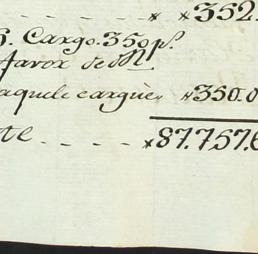 352.
S. Cargo. 350 pˢ.
favor de Mⁿ
aquele cargue. 350.0
te . . . . 87.757.6